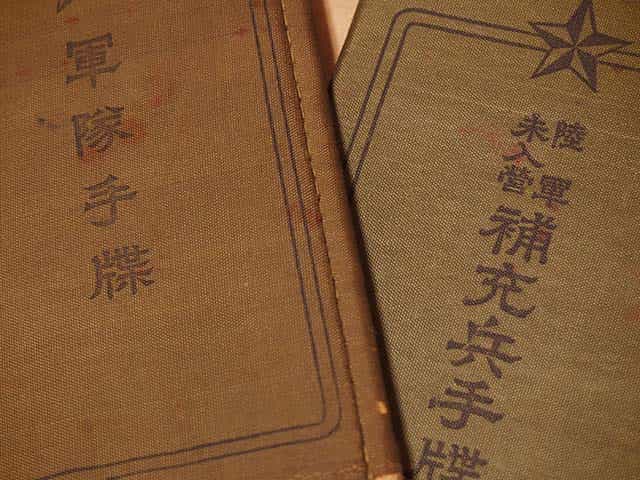 軍隊手牒
陸軍
未入營
補充兵手牒